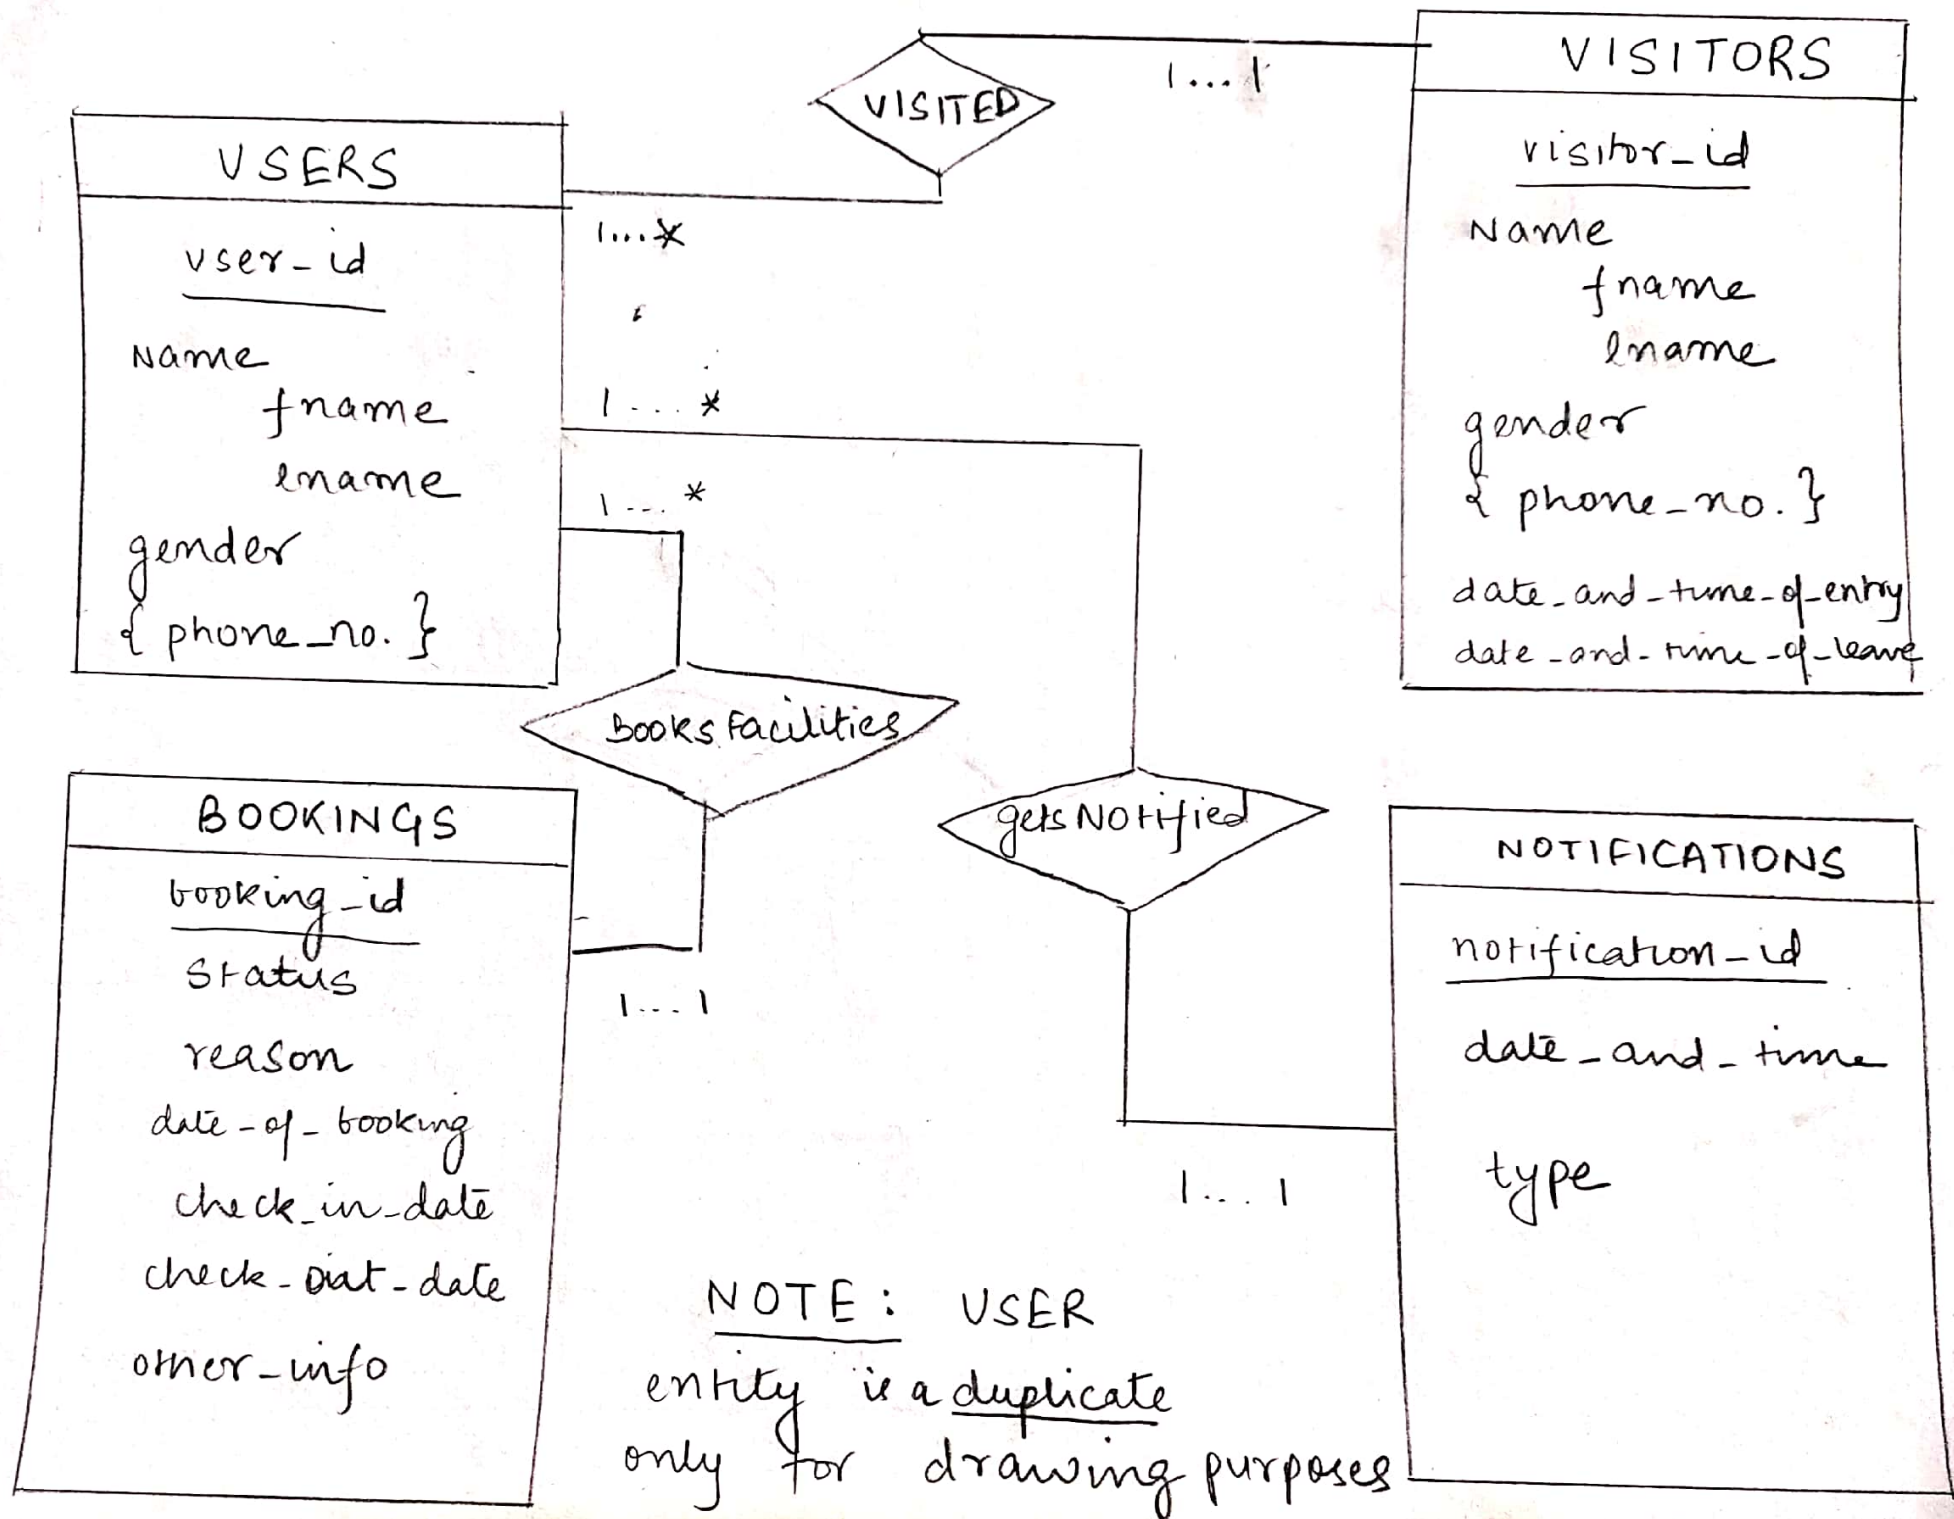 VISITED
1...1
USERS
user-id
Name
fname
lname
gender
{ phone_no. }
1...*
1...*
1...*
VISITORS
visitor-id
Name
fname
lname
gender
{ phone-no. }
date-and-time-of-entry
date-and-time-of-leave
Books Facilities
gets Notified
BOOKINGS
booking-id
Status
reason
date-of-booking
check_in-date
check-out-date
other-info
1...1
1...1
NOTIFICATIONS
notification-id
date-and-time
type
NOTE: USER
entity is a duplicate
only for drawing purposes